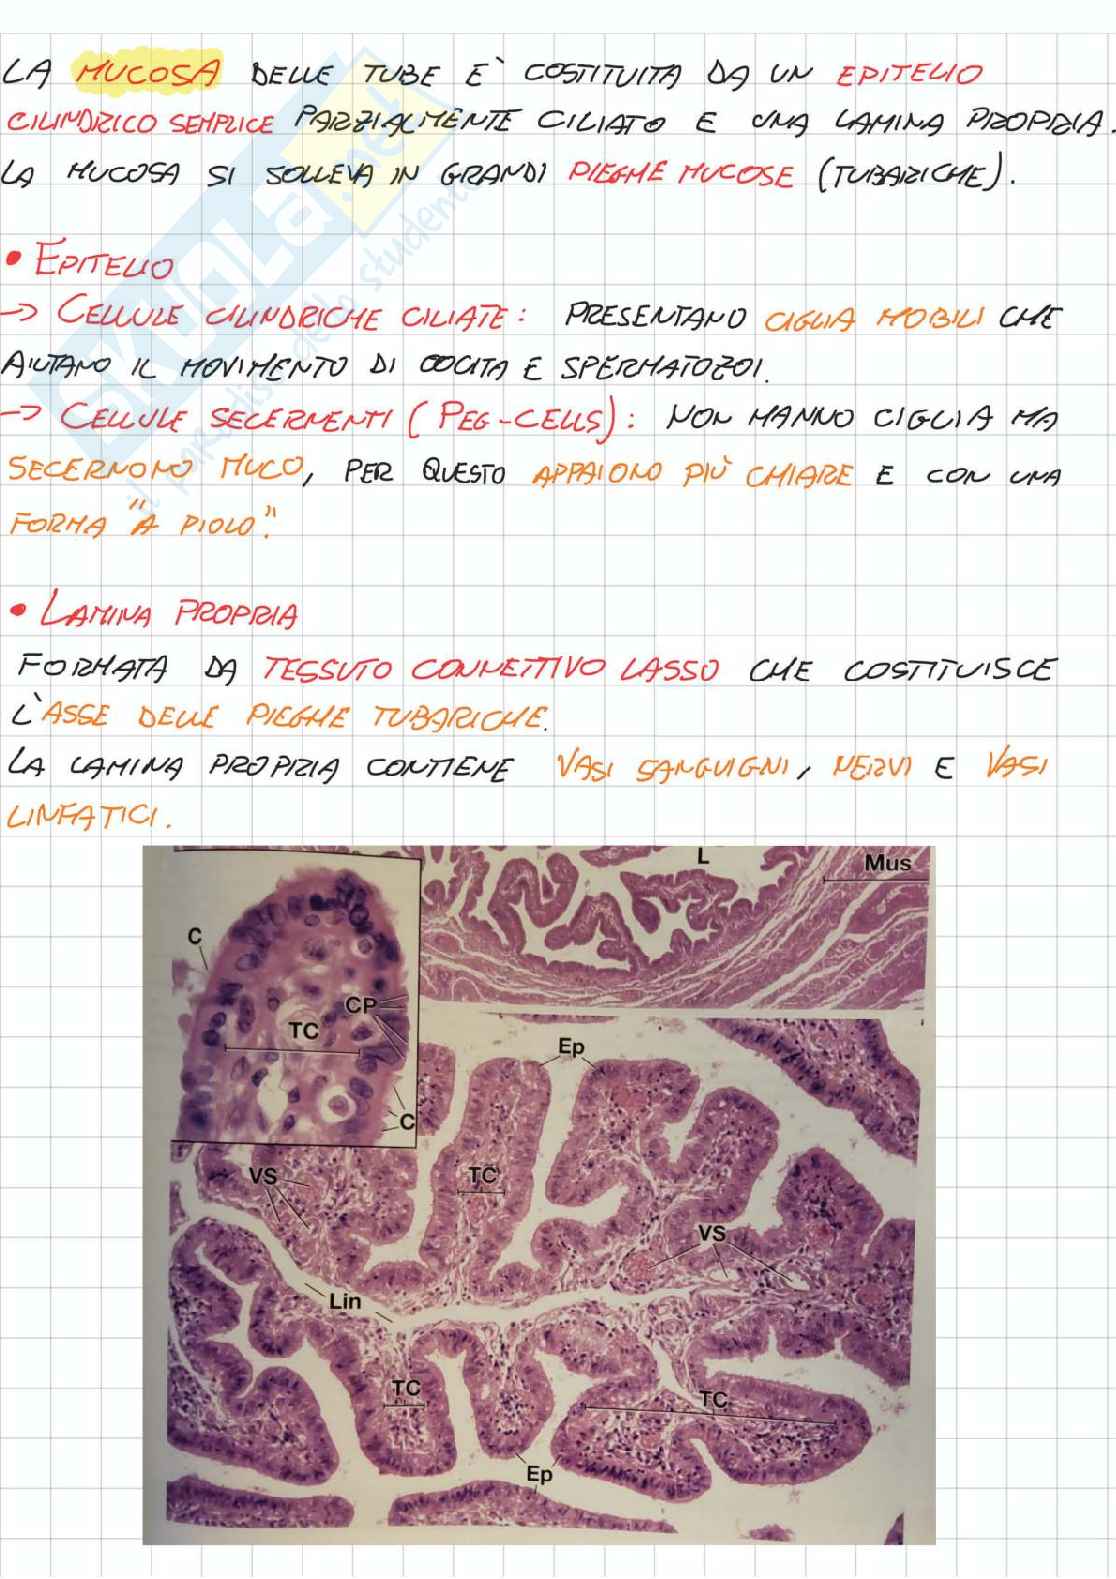 LA MUCOSA DELLE TUBE E` COSTITUITA DA UN EPITELIO
CILINDRICO SEMPLICE PARZIALMENTE CILIATO E UNA LAMINA PROPRIA.
LA MUCOSA SI SOLLEVA IN GRANDI PIEGHE MUCOSE (TUBARICHE).
• EPITELIO
-> CELLULE CILINDRICHE CILIATE: PRESENTANO CIGLIA MOBILI CHE
AIUTANO IL MOVIMENTO DI OOCITA E SPERMATOZOI.
-> CELLULE SECERNENTI (PEG-CELLS): NON HANNO CIGLIA MA
SECERNONO MUCO, PER QUESTO APPAIONO PIÙ CHIARE E CON UNA
FORMA "A PIOLO".
• LAMINA PROPRIA
FORMATA DA TESSUTO CONNETTIVO LASSO CHE COSTITUISCE
L'ASSE DELLE PIEGHE TUBARICHE.
LA LAMINA PROPRIA CONTIENE VASI SANGUIGNI, NERVI E VASI
LINFATICI.
SKUOLA.net
il paradiso dello studente
L
Mus
C
CP
TC
Ep
C
VS
TC
VS
Lin
TC
TC
Ep